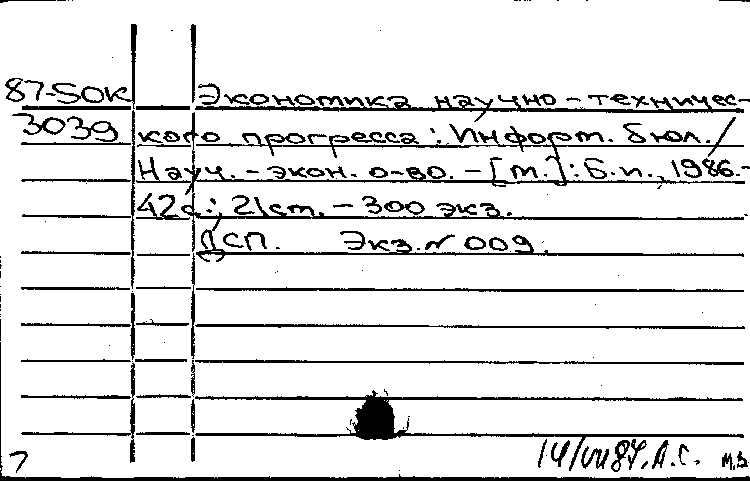 87-50к Экономика научно-техничес-
3039 кого прогресса: Информ. бюл./
Науч.-экон. о-во. - [М.]: Б.и., 1986.-
42с.; 21см. - 300 экз.
ДСП. Экз. № 009.
7 14/VII 87. А.С.